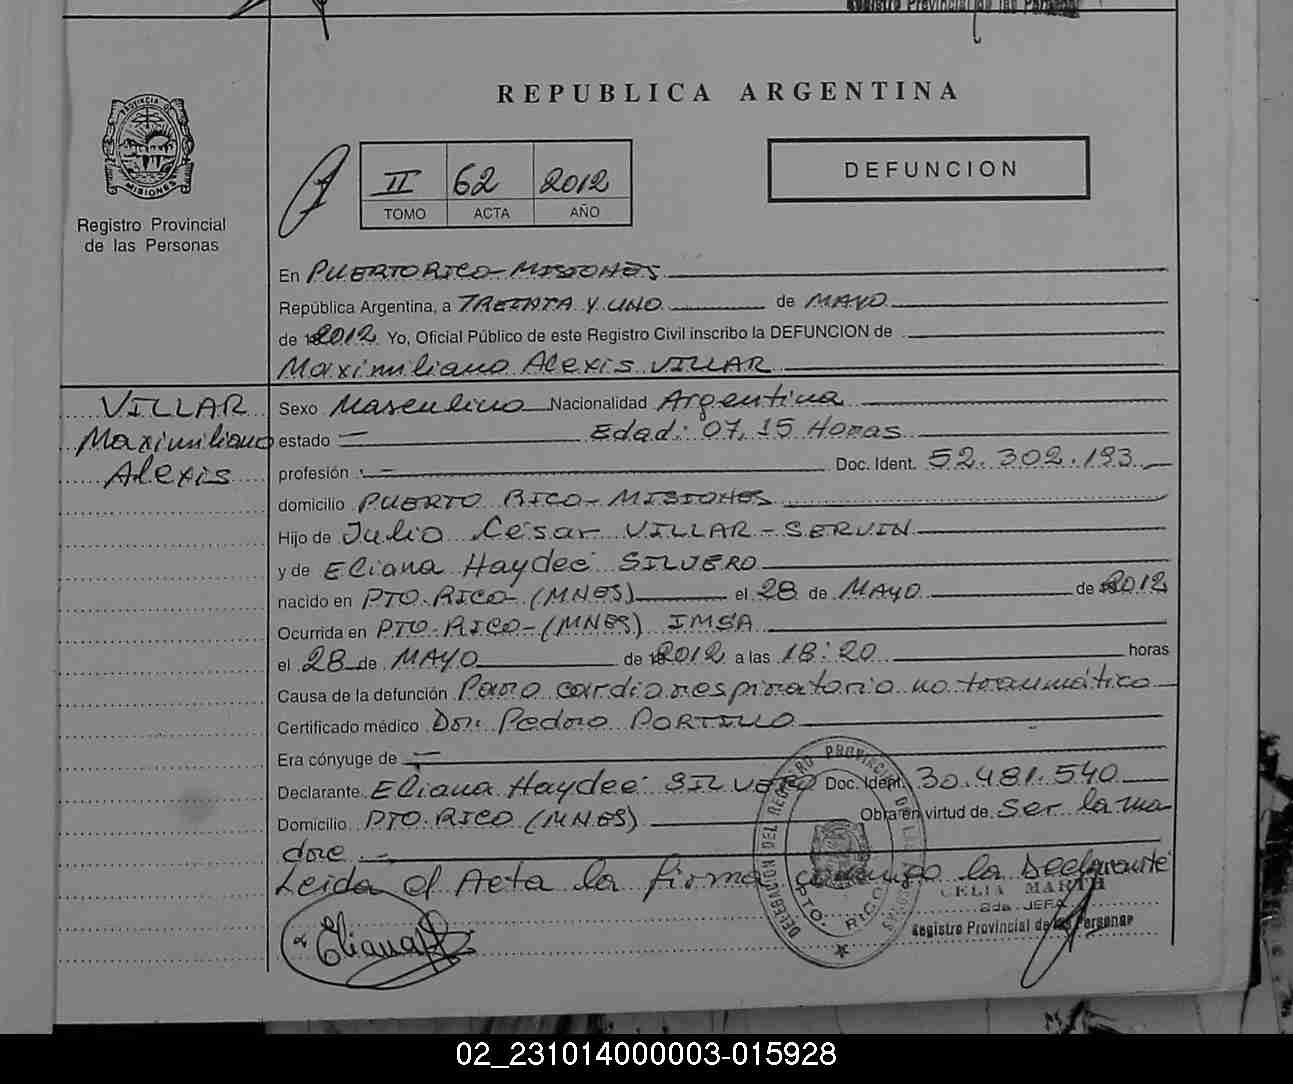 Registro Provincial de las Personas
REPUBLICA ARGENTINA
PROVINCIA DE MISIONES
Registro Provincial
de las Personas
II 62 2012
TOMO ACTA AÑO
DEFUNCION
En PUERTO RICO - MISIONES
República Argentina, a TREINTA Y UNO de MAYO
de 2012 Yo, Oficial Público de este Registro Civil inscribo la DEFUNCION de
Maximiliano Alexis VILLAR
VILLAR
Maximiliano
Alexis
Sexo Masculino Nacionalidad Argentina
estado — Edad: 07,15 Horas
profesión . — Doc. Ident. 52.302.193.—
domicilio PUERTO RICO - MISIONES
Hijo de Julio César VILLAR - SERVIN
y de Eliana Haydeé SILVERO
nacido en PTO. RICO - (MNES) el 28 de MAYO de 2012
Ocurrida en PTO. RICO - (MNES) IMSA
el 28 de MAYO de 2012 a las 18:20 horas
Causa de la defunción Paro cardiorrespiratorio no traumático
Certificado médico Dr. Pedro PORTILLO
Era cónyuge de —
Declarante Eliana Haydeé SILVERO Doc. Ident. 30.481.540
Domicilio PTO. RICO (MNES) Obra en virtud de Ser la ma
dre .—
Leida el Acta la firma conmigo la Declarante
DELEGACION DEL REGISTRO PROVINCIAL DE LAS PERSONAS
PTO. RICO
CELIA MARTH
2da. JEFA
Registro Provincial de las Personas
Eliana
02_231014000003-015928